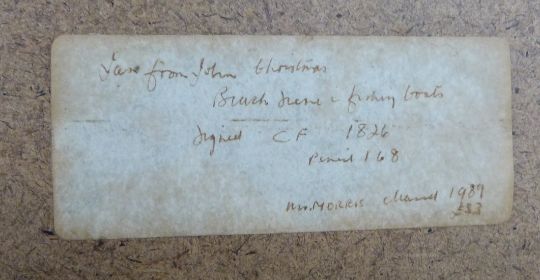 from John Christmas
Beach Scene c fishing boats
Signed CF 1826
Pencil 168
MORRIS cleaned 1989
£33